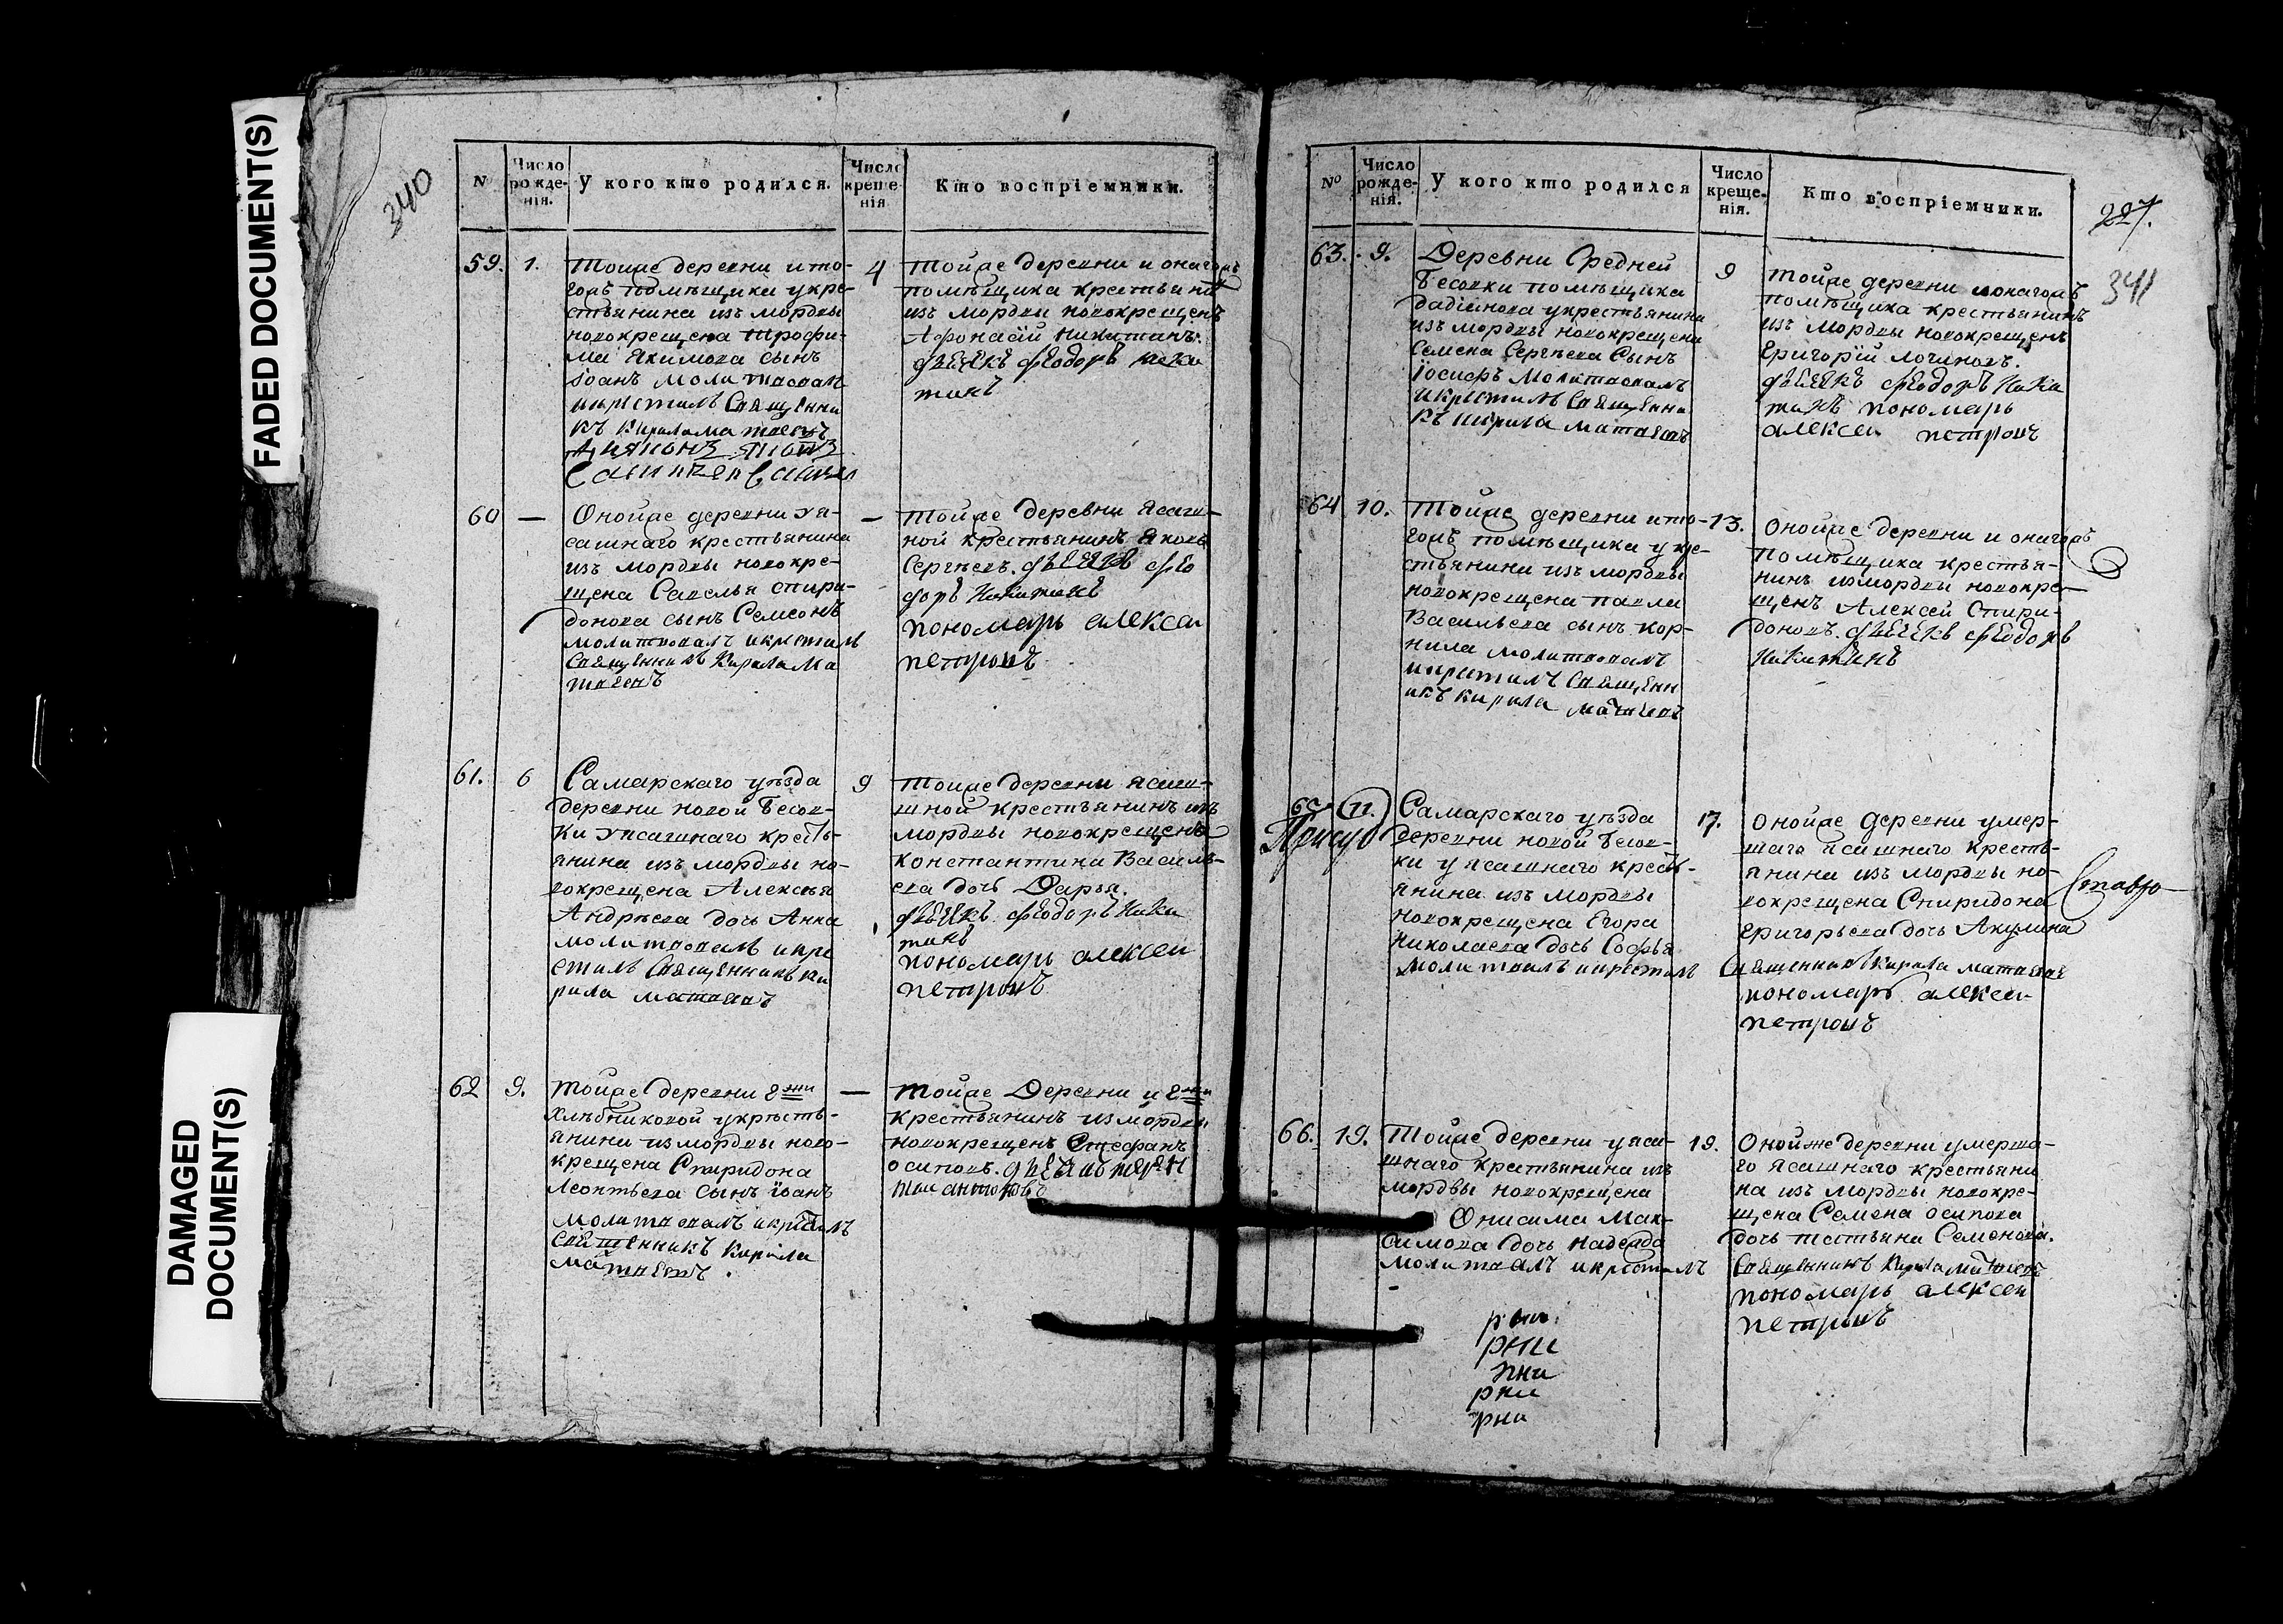 FADED DOCUMENT(S)
DAMAGED
DOCUMENT(S)
340
№
Число
рожде-
нія.
У кого кто родился.
Число
креще-
нія
Кто воспріемники.
59. 1.
Тойже деревни ито-
гожъ помѣщика укре-
стьянина изъ мордвы
новокрещена Трофи-
ма Якимова сынъ
Іоанъ молитвовалъ
икрестилъ Священни
къ Кирила Матвевъ
4
Тойже деревни и онагожъ
помѣщика крестьянинъ
изъ мордвы новокрещенъ
Афонасїй Никитинъ.
Феодоръ Ники
тинъ
60 —
Онойже деревни уя-
сашнаго крестьянина
изъ мордвы новокре-
щена Савелья Спири-
донова сынъ Семсонъ
молитвовалъ икрестилъ
священникъ Кирила Ма
твеевъ
—
Тойже деревни ясаш-
ной крестьянинъ Яковъ
Сергѣевъ. Фео
доръ Никитинъ
пономарь алексеи
петровъ
61. 6
Самарскаго уѣзда
деревни новой Бесов-
ки уясашнаго кресть-
янина изъ мордвы но-
вокрещена Алексѣя
Андрѣева дочь Анна
молитвовалъ икре
стилъ Священникъ Ки
рила матвевъ
9
Тойже деревни ясаш-
ной крестьянинъ изъ
мордвы новокрещенъ
константина Василь-
ева дочь Дарья.
Феодоръ Ники
тинъ
пономарь алексеи
петровъ
62 9.
Тойже деревни Г жи
Хлѣбниковой укресть-
янина измордвы ново-
крещена Спиридона
Леонтьева сынъ Іоанъ
молитвовалъ икрестилъ
Священникъ Кирила
матвевъ.
—
Тойже Деревни и Г жи
крестьянинъ измордвы
новокрещенъ Стефанъ
осиповъ.
№
Число
рожде-
нія.
У кого кто родился
Число
креще-
нія.
Кто воспріемники.
227.
341
63. 9.
Деревни Средней
Бесовки помѣщика
укрестьянина
изъ мордвы новокрещена
Семена Сергѣева Сынъ
іосифъ молитвовалъ
икрестилъ Священни
къ Кирила матвевъ
9
Тойже деревни ионагожъ
помѣщика крестьянинъ
изъ мордвы новокрещенъ
Григорїй логиновъ.
Феодоръ Ники
тинъ пономарь
алексеи петровъ
64 10.
Тойже деревни ито-
гожъ помѣщика укре-
стьянина изъ мордвы
новокрещена павла
Васильева сынъ кор-
нила молитвовалъ
икрестилъ Священн
икъ кирила матвевъ
13.
Онойже деревни и онагожъ
помѣщика крестья-
нинъ измордвы новокре-
щенъ Алексей Спири-
доновъ. феодоръ
Никитинъ
65 11.
Самарскаго уѣзда
деревни новой Бесов-
ки у ясашнаго кресть-
янина изъ мордвы
новокрещена Егора
Николаева дочь Софья
молитвовалъ икрестилъ
17.
Онойже деревни умер-
шаго ясашнаго кресть-
янина изъ мордвы но-
вокрещена Спиридона
григорьева дочь Акулина
Священникъ Кирила матвевъ
пономарь алексеи
петровъ
66. 19.
Тойже деревни уяса-
шнаго крестьянина изъ
мордвы новокрещена
Онисима Мак-
симова дочь надежда
молитвовалъ икрестилъ
19.
Онойже деревни умерша-
го ясашнаго крестьяни
на изъ мордвы новокре-
щена Семена осипова
дочь татьяна Семенова.
Священникъ Кирила матвевъ
пономарь алексеи
петровъ
рни
рни
рни
рни